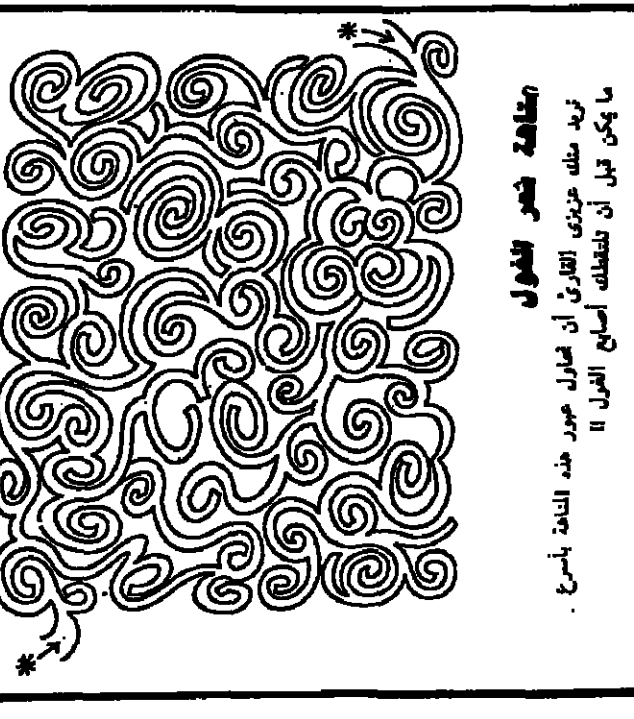 متاهة شعر الغول
نريد منك عزيزى القارئ أن تحاول عبور هذه المتاهة بأسرع
ما يمكن قبل أن تلتقطك أصابع الغول !!